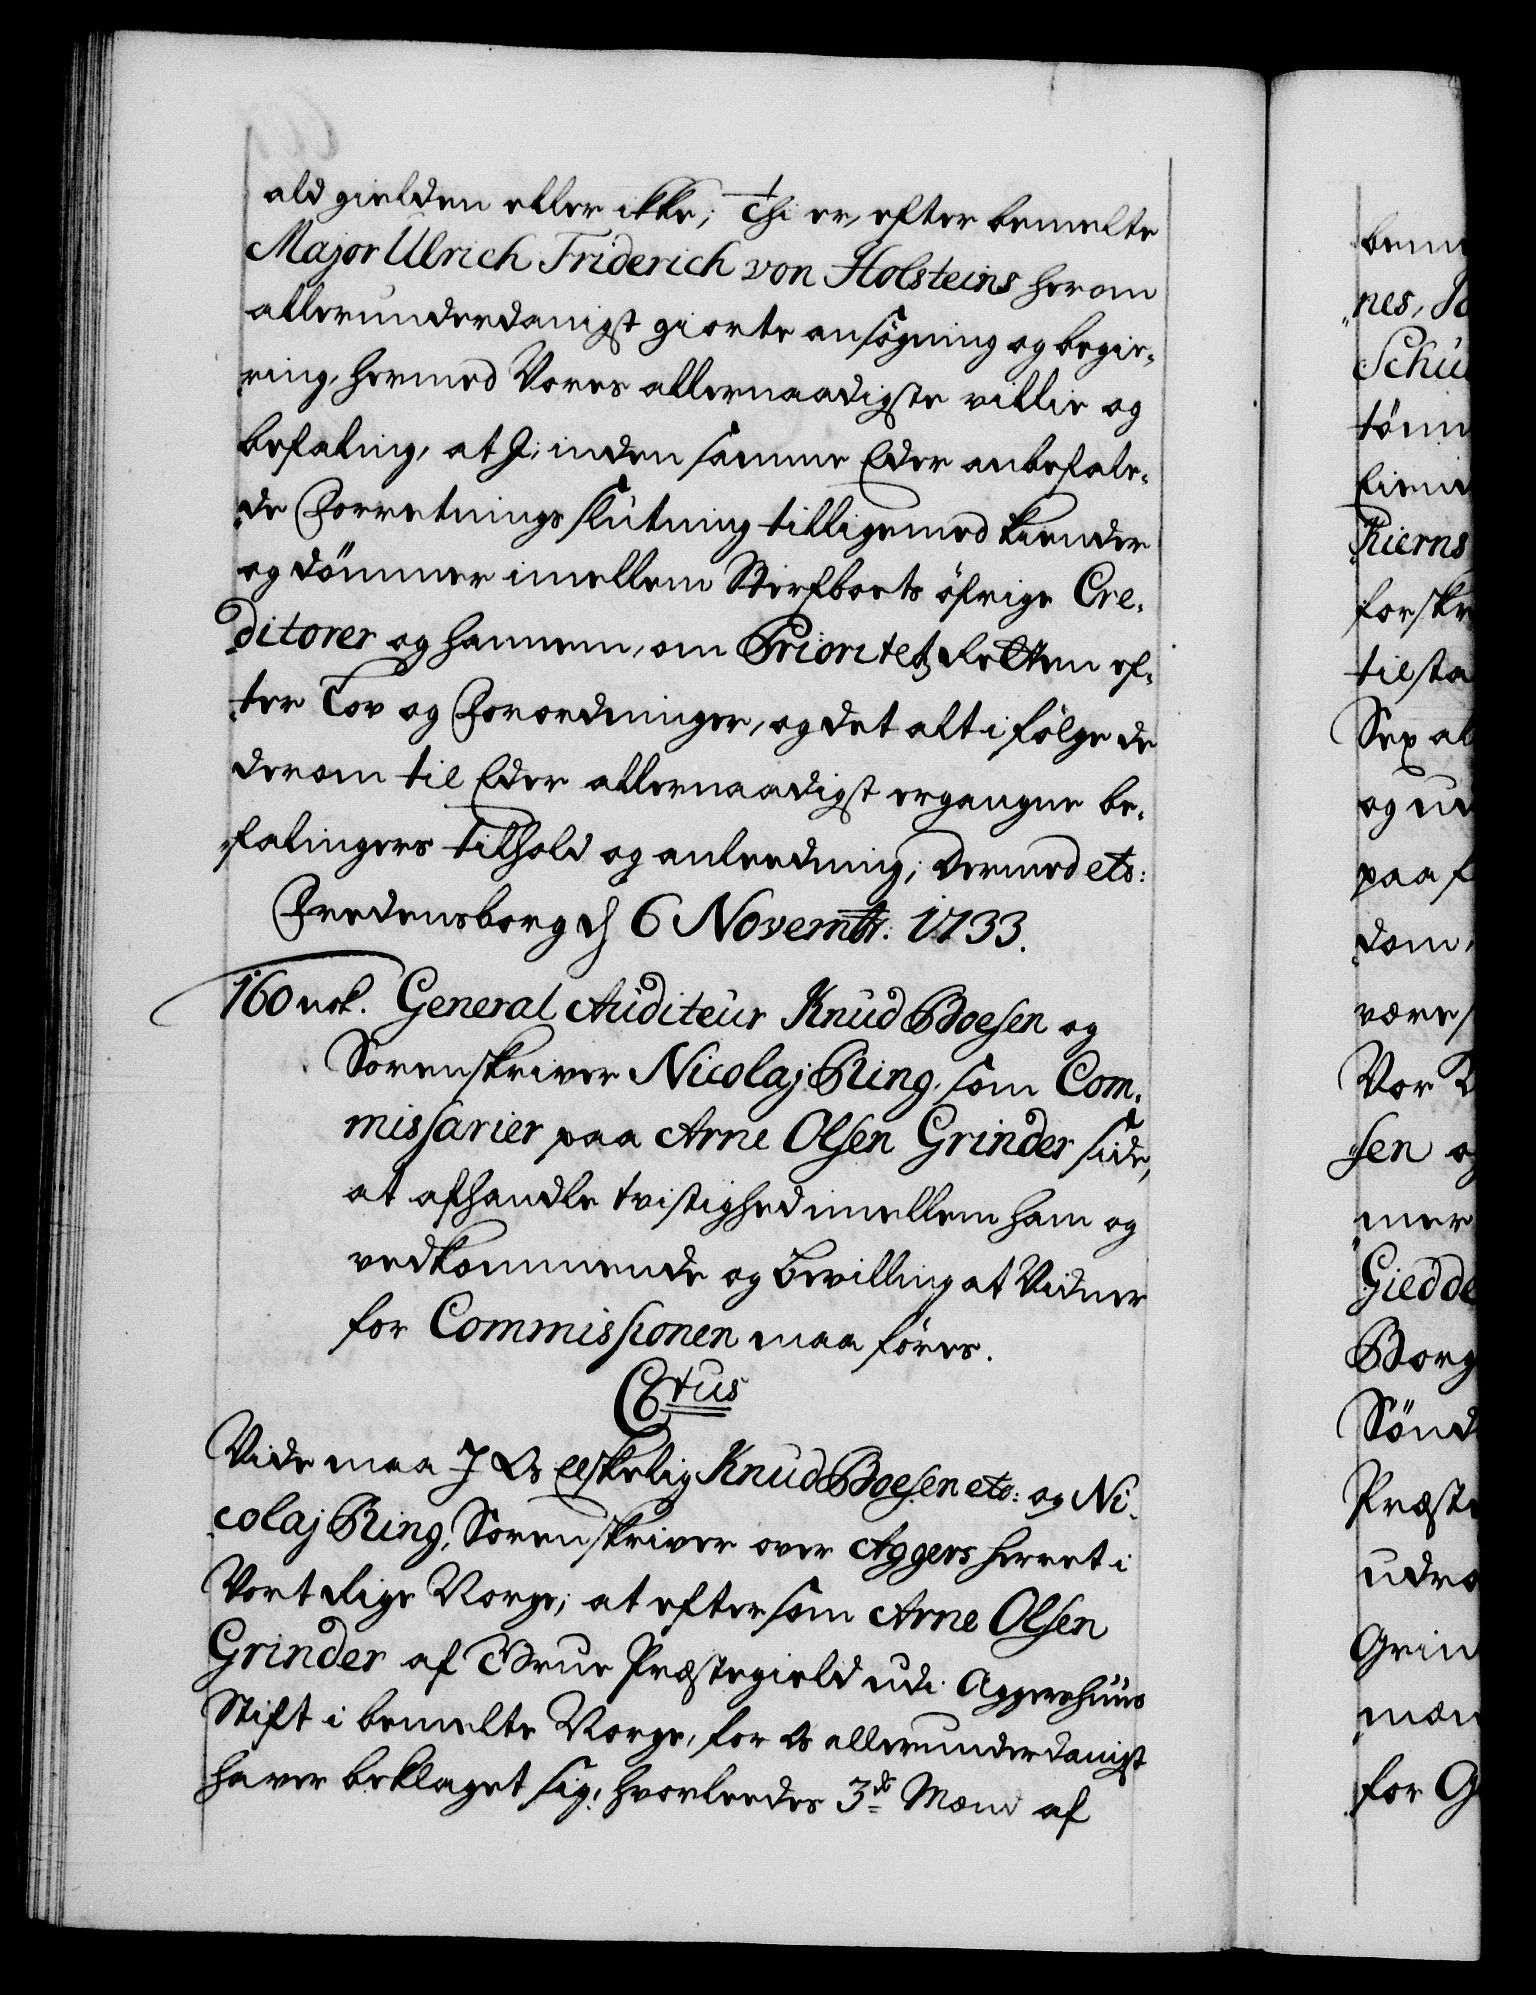 ald gielden eller ikke; Thi er, efter bemelte
Major Ulrich Friderich von Holsteins herom
allerunderdanigst giorte ansögning og begie-
ring, hermed Vores allernaadigste villie og
befaling, at I, inden samme Eder anbefale-
de Forretnings slutning tilligemed kiender
og dömmer imellem Sterfboets öfrige Cre-
ditorer og hannem, om Prioritets Retten ef-
ter Lov og Forordninger, og det alt i fölge de
derom til Eder allernaadigst ergangne be-
falingers tilhold og anleedning; Dermed etc:
Fredensborg d 6 Novembr. 1733.
160 General Auditeur Knud Boesen og
Sorenskriver Nicolaj Ring, som Com-
missarier paa Arne Olsen Grinder side,
at afhandle tvistighed imellem ham og
vedkommende og bevilling at Vidner
for Commissionen maa föres.
C6tus
Vide maa I Os Elskelig Knud Boesen etc: og Ni-
colaj Ring, Sorenskriver over Aggers herret i
Vort Rige Norge; at eftersom Arne Olsen
Grinder af Grue Præstegield udi Aggershuus
Stift i bemelte Norge, for Os allerunderdanigst
haver beklaget sig, hvorleedes 3de Mænd af
bem
nes,
Schu
tönn
Rierns
forskr
til sta
Sex al
og ud
paa f
dom,
være
Vor
sen og
mer
Giedde
Borg
Sönd
Præste
udra
Grin
mæn
for G